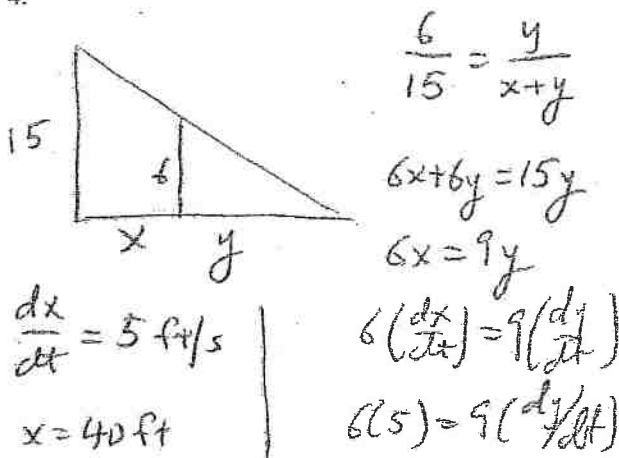 4.
15
6
x y
dx/dt = 5 ft/s
x = 40 ft
6/15 = y/(x+y)
6x+6y=15y
6x=9y
6(dx/dt)=9(dy/dt)
6(5)=9(dy/dt)